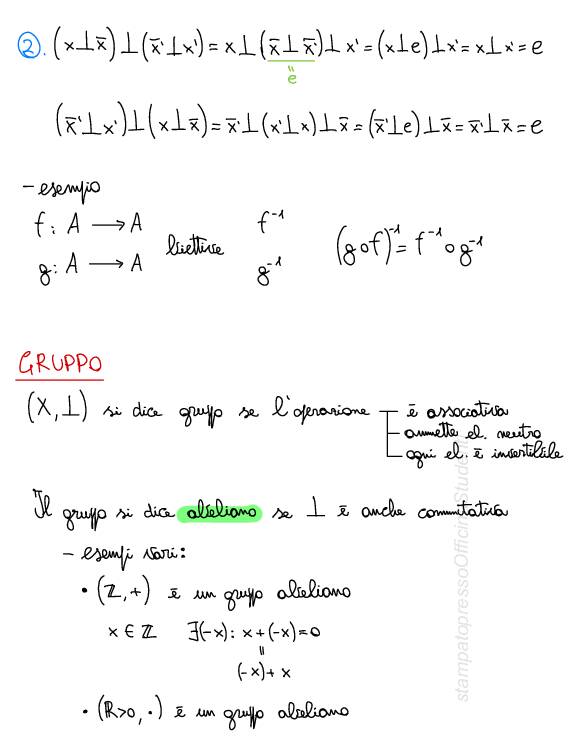 ②. (x⊥x̄)⊥(x̄'⊥x') = x⊥(x̄⊥x̄')⊥x' = (x⊥e)⊥x' = x⊥x' = e
e
(x̄'⊥x')⊥(x⊥x̄) = x̄'⊥(x'⊥x)⊥x̄ = (x̄'⊥e)⊥x̄ = x̄'⊥x̄ = e
- esempio
f: A → A biettive f⁻¹ (g∘f)⁻¹ = f⁻¹∘g⁻¹
g: A → A g⁻¹
GRUPPO
(X,⊥) si dice gruppo se l'operazione è associativa
ammette el. neutro
ogni el. è invertibile
Il gruppo si dice abeliano se ⊥ è anche commutativa
- esempi vari:
• (ℤ,+) è un gruppo abeliano
x ∈ ℤ ∃(-x): x+(-x)=0
=
(-x)+x
• (ℝ>0,·) è un gruppo abeliano
stampatopressoOfficinaStudenti